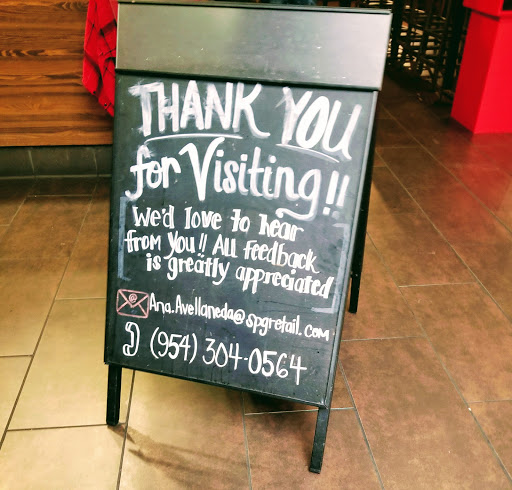 THANK YOU
for Visiting!!
We'd love to hear
from You!! All feedback
is greatly appreciated
Ana.Avellaneda@spgretail.com
(954) 304-0564